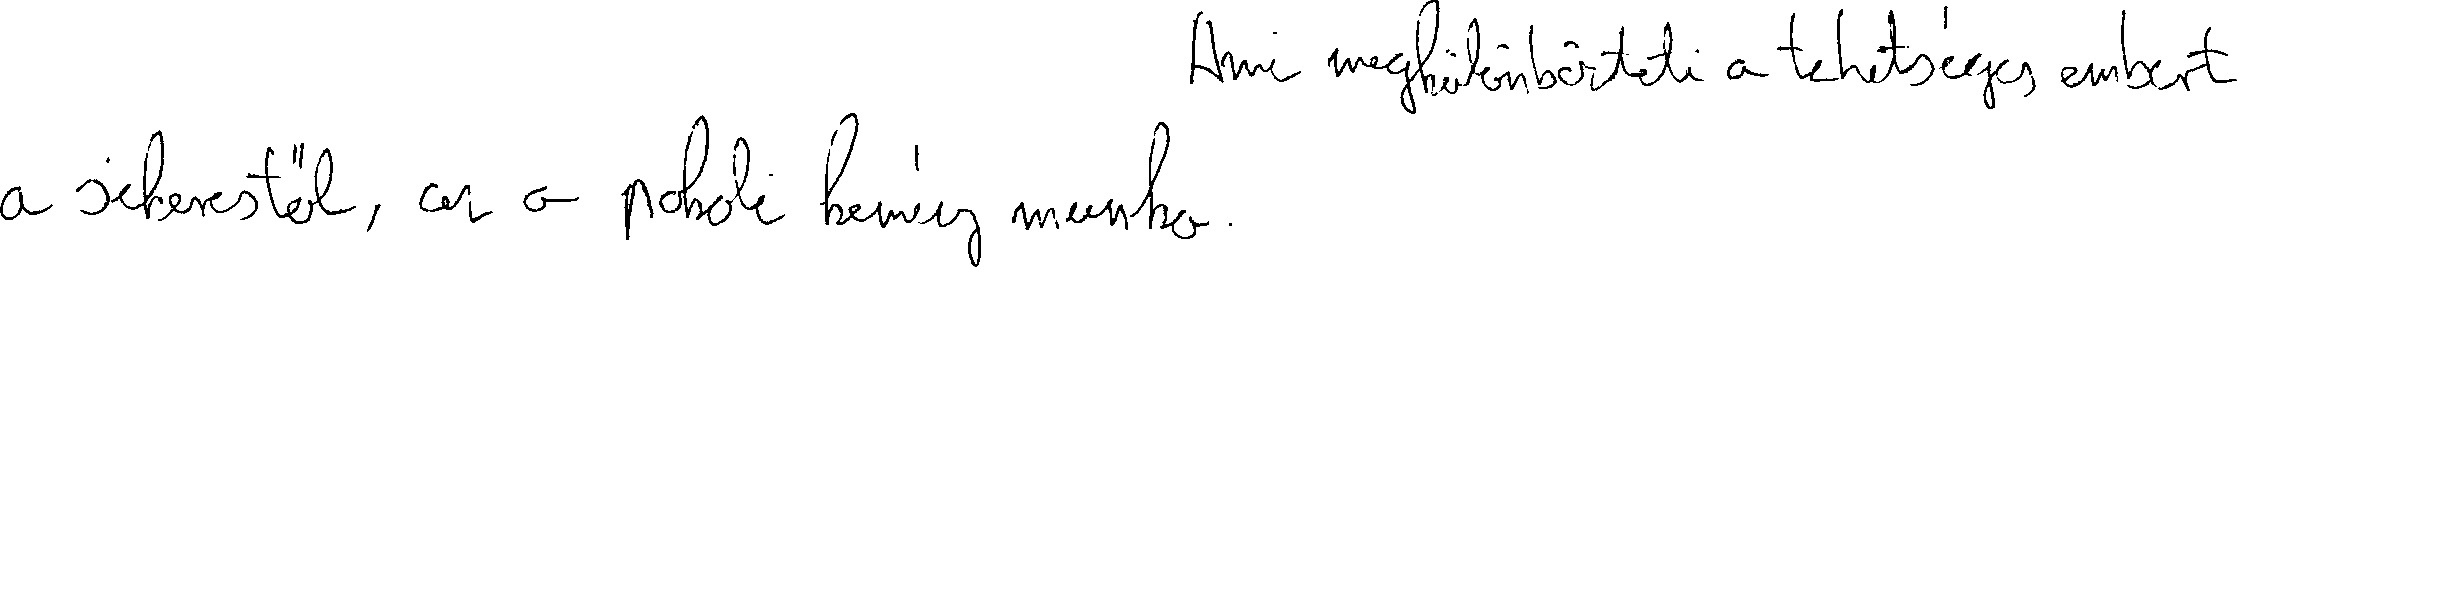 Ami megkülönbözteti a tehetséges embert
a sikerestől, az a pokoli kemény munka.